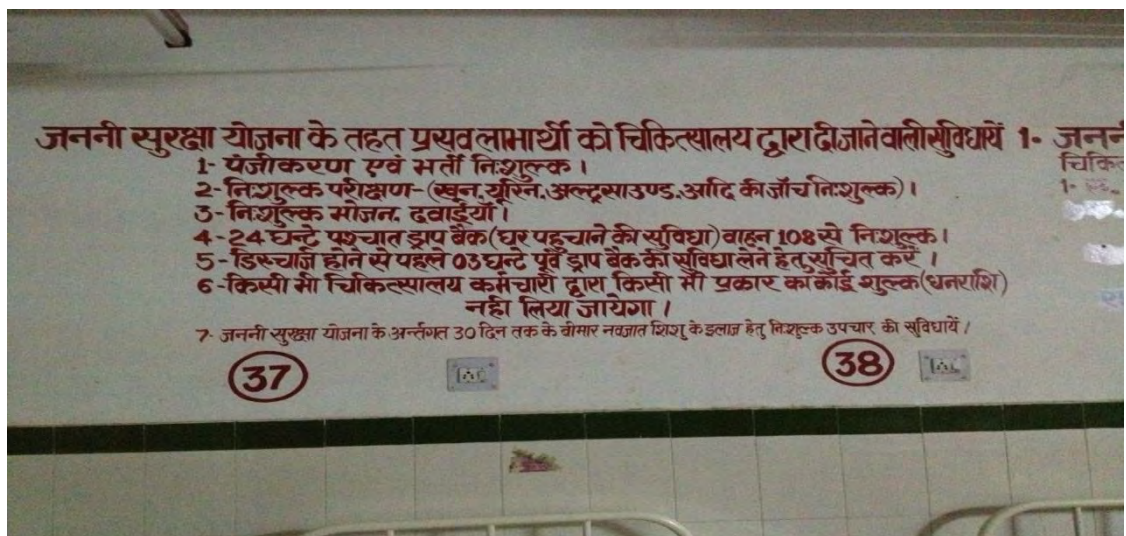 जननी सुरक्षा योजना के तहत प्रसव लाभार्थी को चिकित्सालय द्वारा दी जाने वाली सुविधायें
1- पंजीकरण एवं भर्ती निःशुल्क ।
2- निःशुल्क परीक्षण-(खून, यूरिन, अल्ट्रसाउण्ड, आदि की जाँच निःशुल्क) ।
3- निःशुल्क भोजन, दवाईयाँ ।
4-24 घन्टे पश्चात ड्राप बैक(घर पहुचाने की सुविधा) वाहन 108 से निःशुल्क ।
5- डिस्चार्ज होने से पहले 03 घन्टे पूर्व ड्राप बैक की सुविधा लेने हेतु सूचित करें ।
6-किसी भी चिकित्सालय कर्मचारी द्वारा किसी भी प्रकार का कोई शुल्क(धनराशि)
नही लिया जायेगा ।
7- जननी सुरक्षा योजना के अर्न्तगत 30 दिन तक के बीमार नवजात शिशु के इलाज हेतु निःशुल्क उपचार की सुविधायें ।
37
38
1- जननी
1-